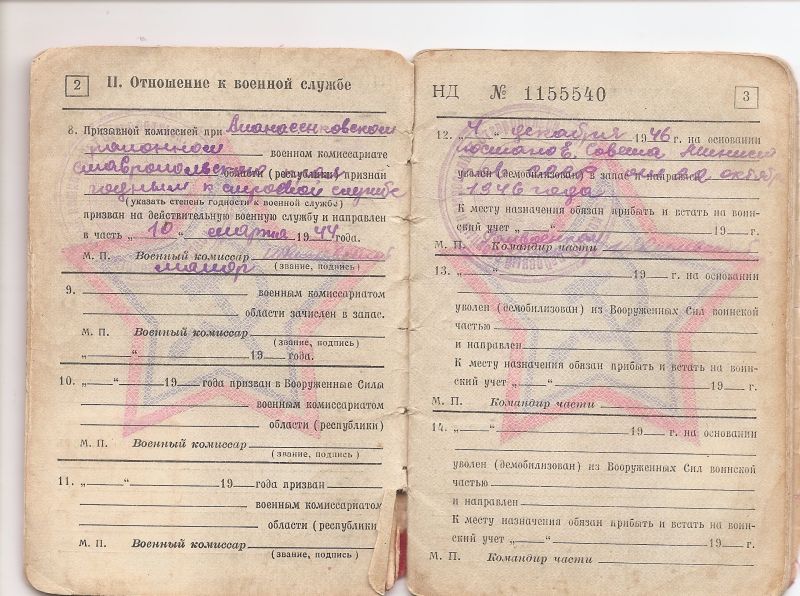 2 II. Отношение к военной службе
8. Призывной комиссией при Апанасенковском
районном военном комиссариате
Ставропольского края области (республики) признан
годным к строевой службе
(указать степень годности к военной службе)
призван на действительную военную службу и направлен
в часть „10“ марта 1944 года.
М. П. Военный комиссар
майор (звание, подпись)
9. военным комиссариатом
области зачислен в запас.
М. П. Военный комиссар
(звание, подпись)
„ “ 19 года.
10. „ “ 19 года призван в Вооруженные Силы
военным комиссариатом
области (республики)
М. П. Военный комиссар
(звание, подпись)
11. „ “ 19 года призван
военным комиссариатом
области (республики
М. П. Военный комиссар
(звание, подпись)
НД № 1155540 3
12. „4“ декабря 1946 г. на основании
Совета Минист
уволен (демобилизован) в запас 22 октяб
1946 года
К месту назначения обязан прибыть и встать на воин-
ский учет „ “ 19 г.
М. П. Командир части
13. „ “ 19 г. на основании
уволен (демобилизован) из Вооруженных Сил воинской
частью
и направлен
К месту назначения обязан прибыть и встать на воин-
ский учет „ “ 19 г.
М. П. Командир части
14. „ “ 19 г. на основании
уволен (демобилизован) из Вооруженных Сил воинской
частью
и направлен
К месту назначения обязан прибыть и встать на воин-
ский учет „ “ 19 г.
М. П. Командир части